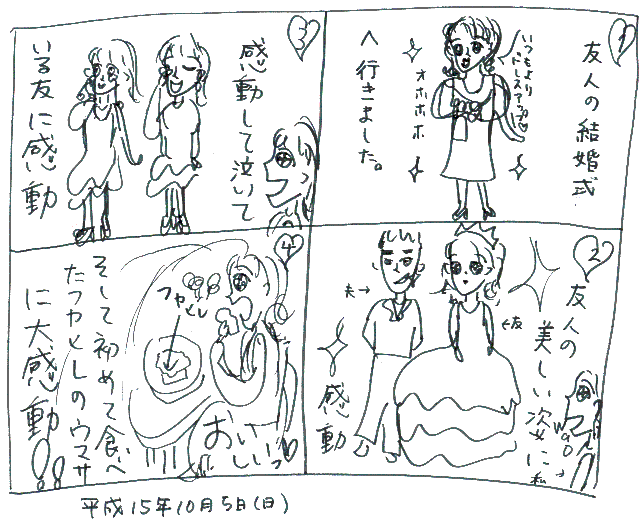 1
友人の結婚式
へ行きました。
いつもより
ドレスアップ♡
オホホホ
2
友人の
美しい姿に
感動
夫→
←友
私
3
感動して泣いて
いる友に感動
4
そして初めて食べ
たフカヒレのウマサ
に大感動!!
フカヒレ
おいしいっ
平成15年10月5日(日)